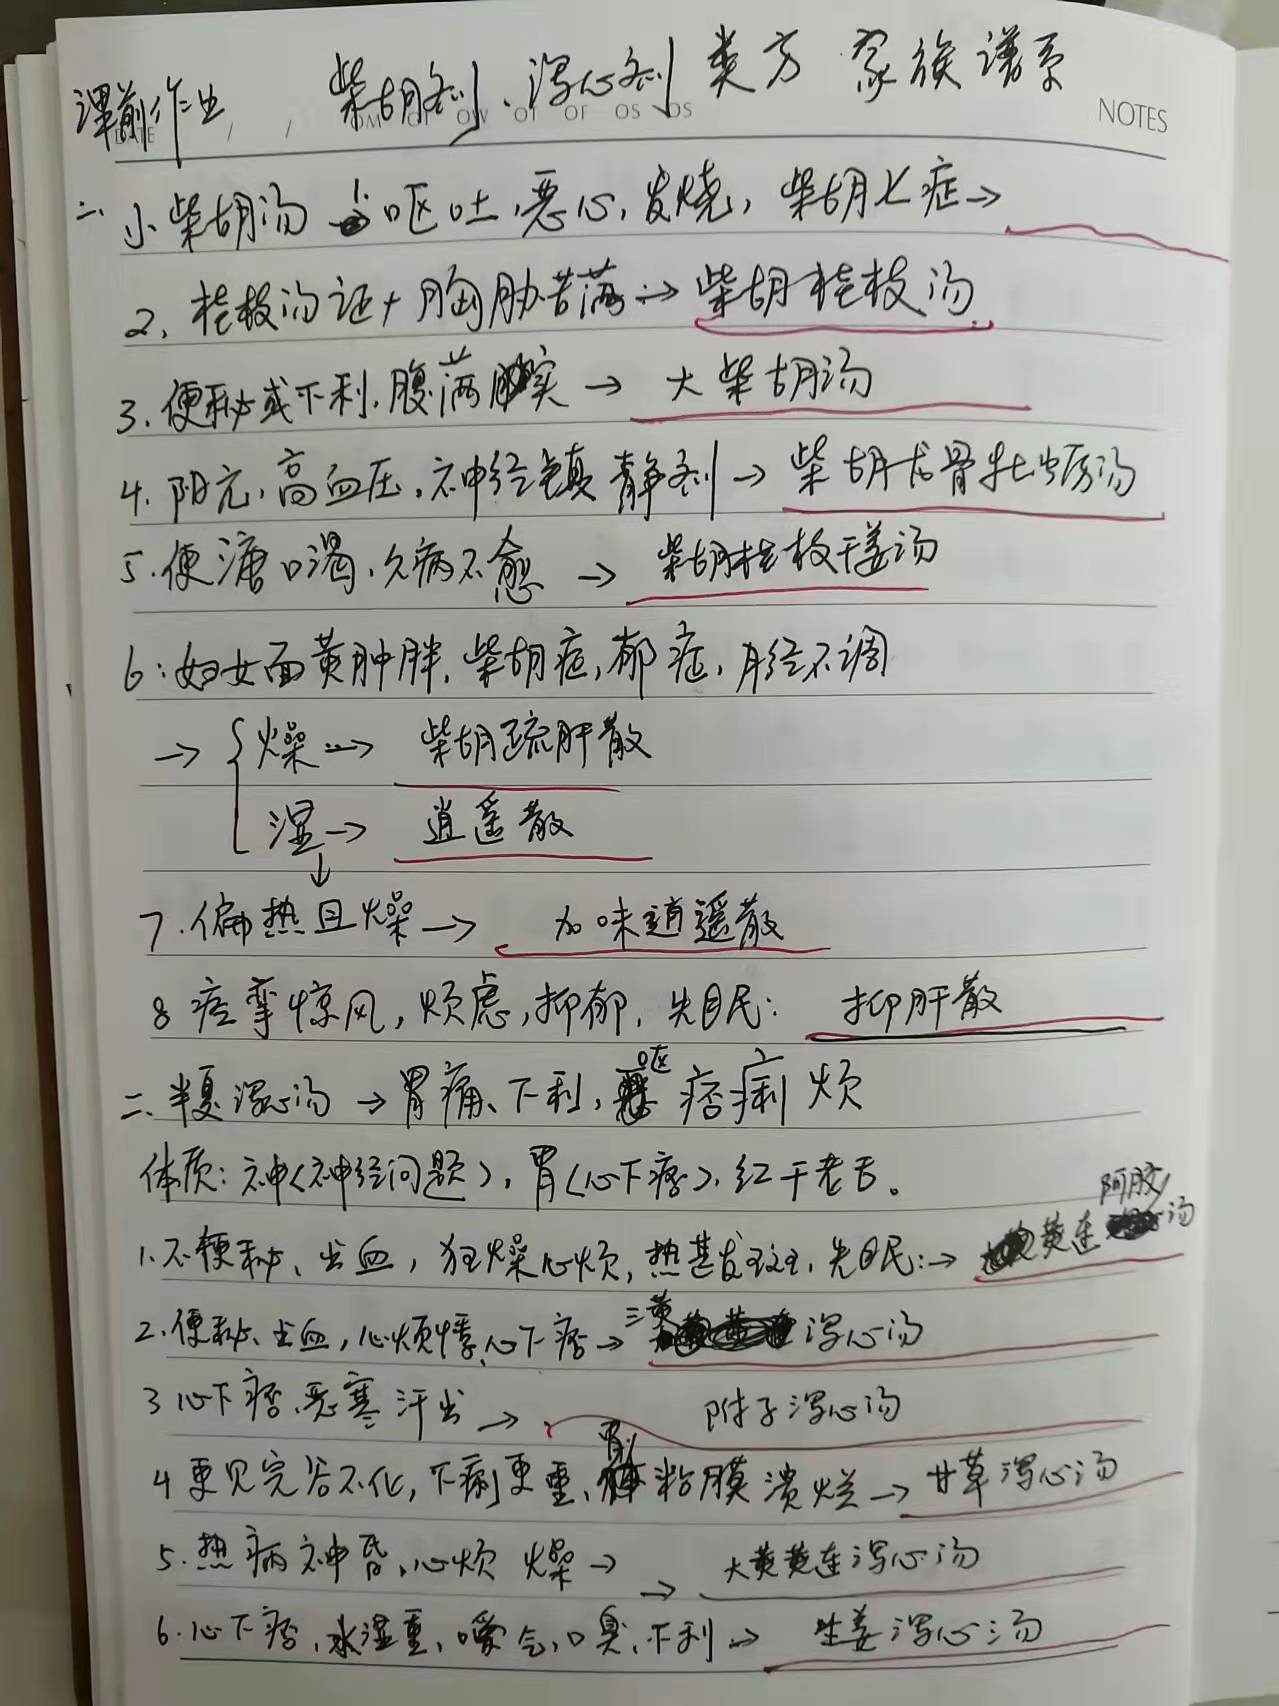 课前作业 柴胡剂、泻心剂 类方 家族谱系
DATE / / NOTES
一、小柴胡汤 1.呕吐,恶心,发烧,柴胡七症→
2、桂枝汤证+胸胁苦满→柴胡桂枝汤
3.便秘或下利.腹满实→大柴胡汤
4.阳亢,高血压,神经镇静剂→柴胡龙骨牡蛎汤
5.便溏口渴.久病不愈→柴胡桂枝干姜汤
6:妇女面黄肿胖.柴胡症,郁症,月经不调
→{燥→柴胡疏肝散
湿→逍遥散
7.偏热且燥→加味逍遥散
8 痉挛惊风,烦虑,抑郁,失眠:抑肝散
二.半夏泻心汤→胃痛、下利,呕 痞痢烦
体质:神(神经问题),胃(心下痞).红干老舌。
1.不便秘、出血,狂燥心烦,热甚发斑,失眠:→黄连阿胶汤
2.便秘、出血,心烦悸、心下痞→三黄泻心汤
3 心下痞.恶寒汗出→附子泻心汤
4 更见完谷不化,下痢更重、胃粘膜溃烂→甘草泻心汤
5.热病神昏,心烦 燥→→大黄黄连泻心汤
6.心下痞,水湿重,嗳气,口臭,下利→生姜泻心汤